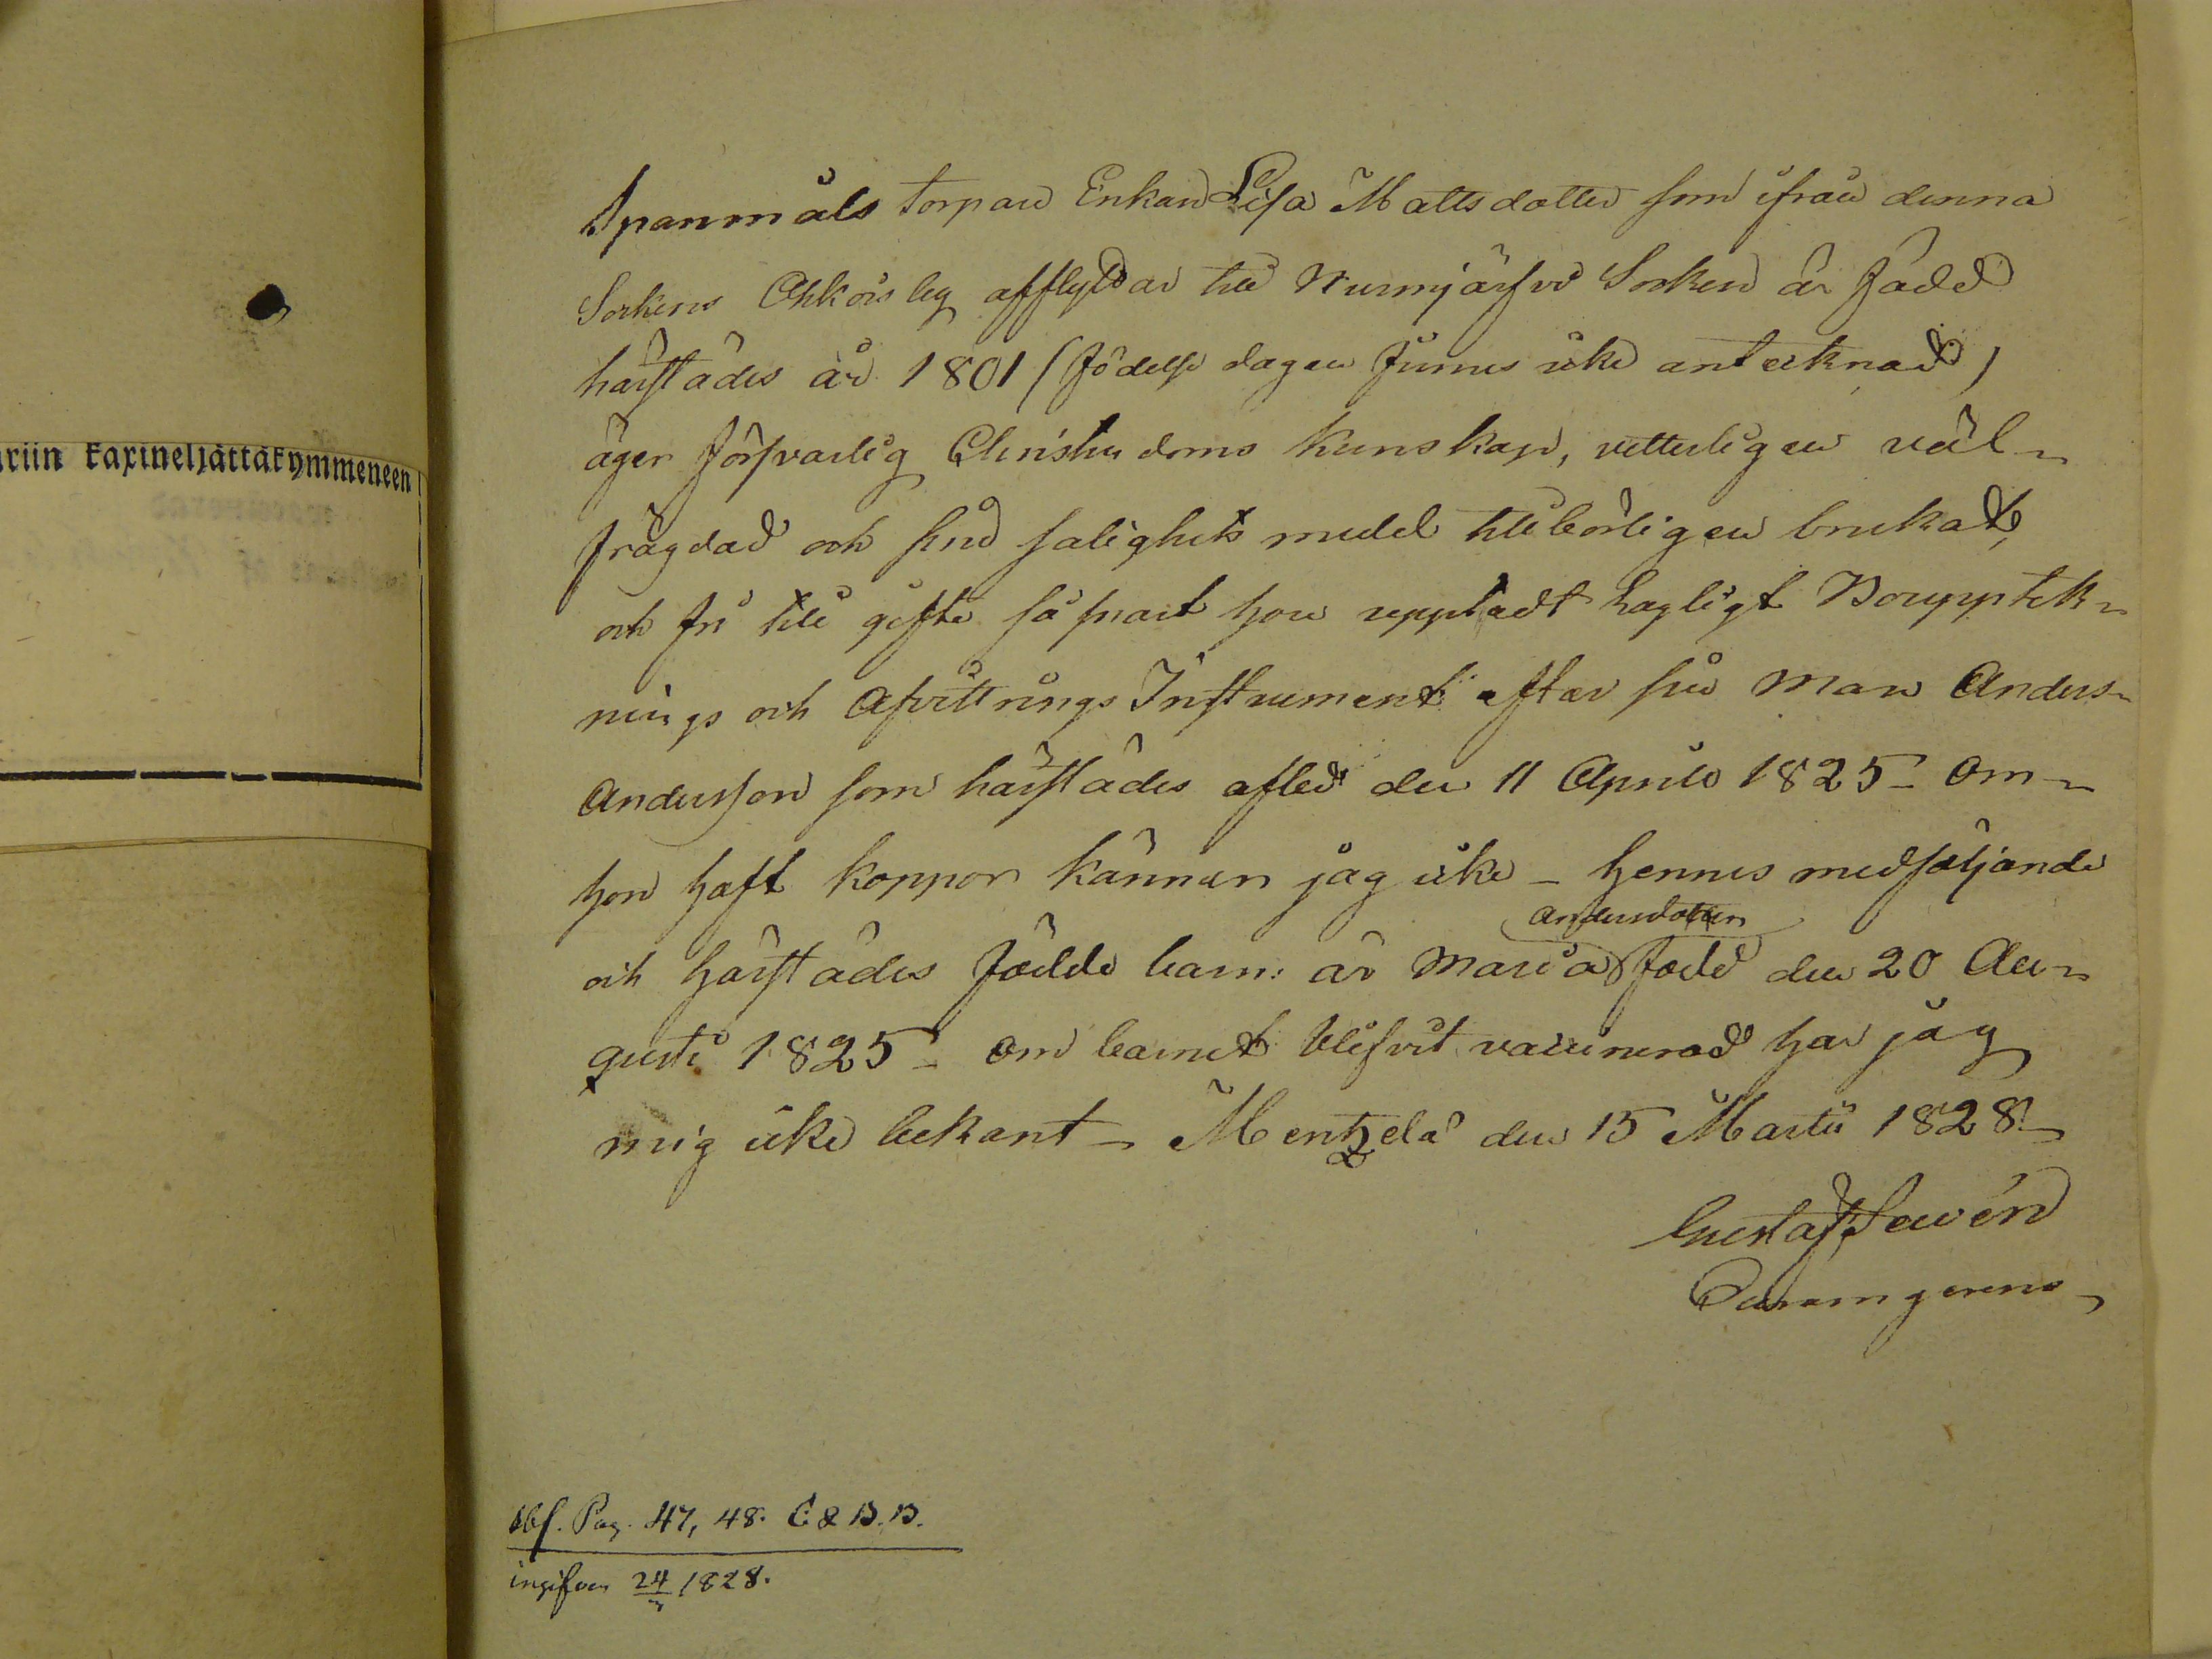 riin kaxineljättäkymmeneen
Spanmåls torpare Enkan Lisa Mattsdotter som ifrån denna
Sockens by afflyttar till Nurmijärfvi Socken är född
härstädes år 1801 (födelse dagen finnes icke antecknad)
äger försvarlig Christendoms kunskap, vetterligen väl
frägdad och sina salighets medel tillbörligen brukat,
och fri till gifte så snart hon upptedt lagligt Bouppteck-
nings och Afvittrings Instrument efter sin man Anders
Andersson som härstädes afled den 11 Aprils 1825 - om
hon haft koppor känner jag icke - hennes medföljande
Andersdotter
och härstädes födde barn: är Maria född den 20 Au-
gusti 1825 - om barnet blifvit vaccinerad har jag
mig icke bekant - Mentzelä den 15 Martii 1828
Gustaf Sevén
Sacram gerens
Abs. Pag. 47, 48. C & B.B.
ingifven 24 1828.